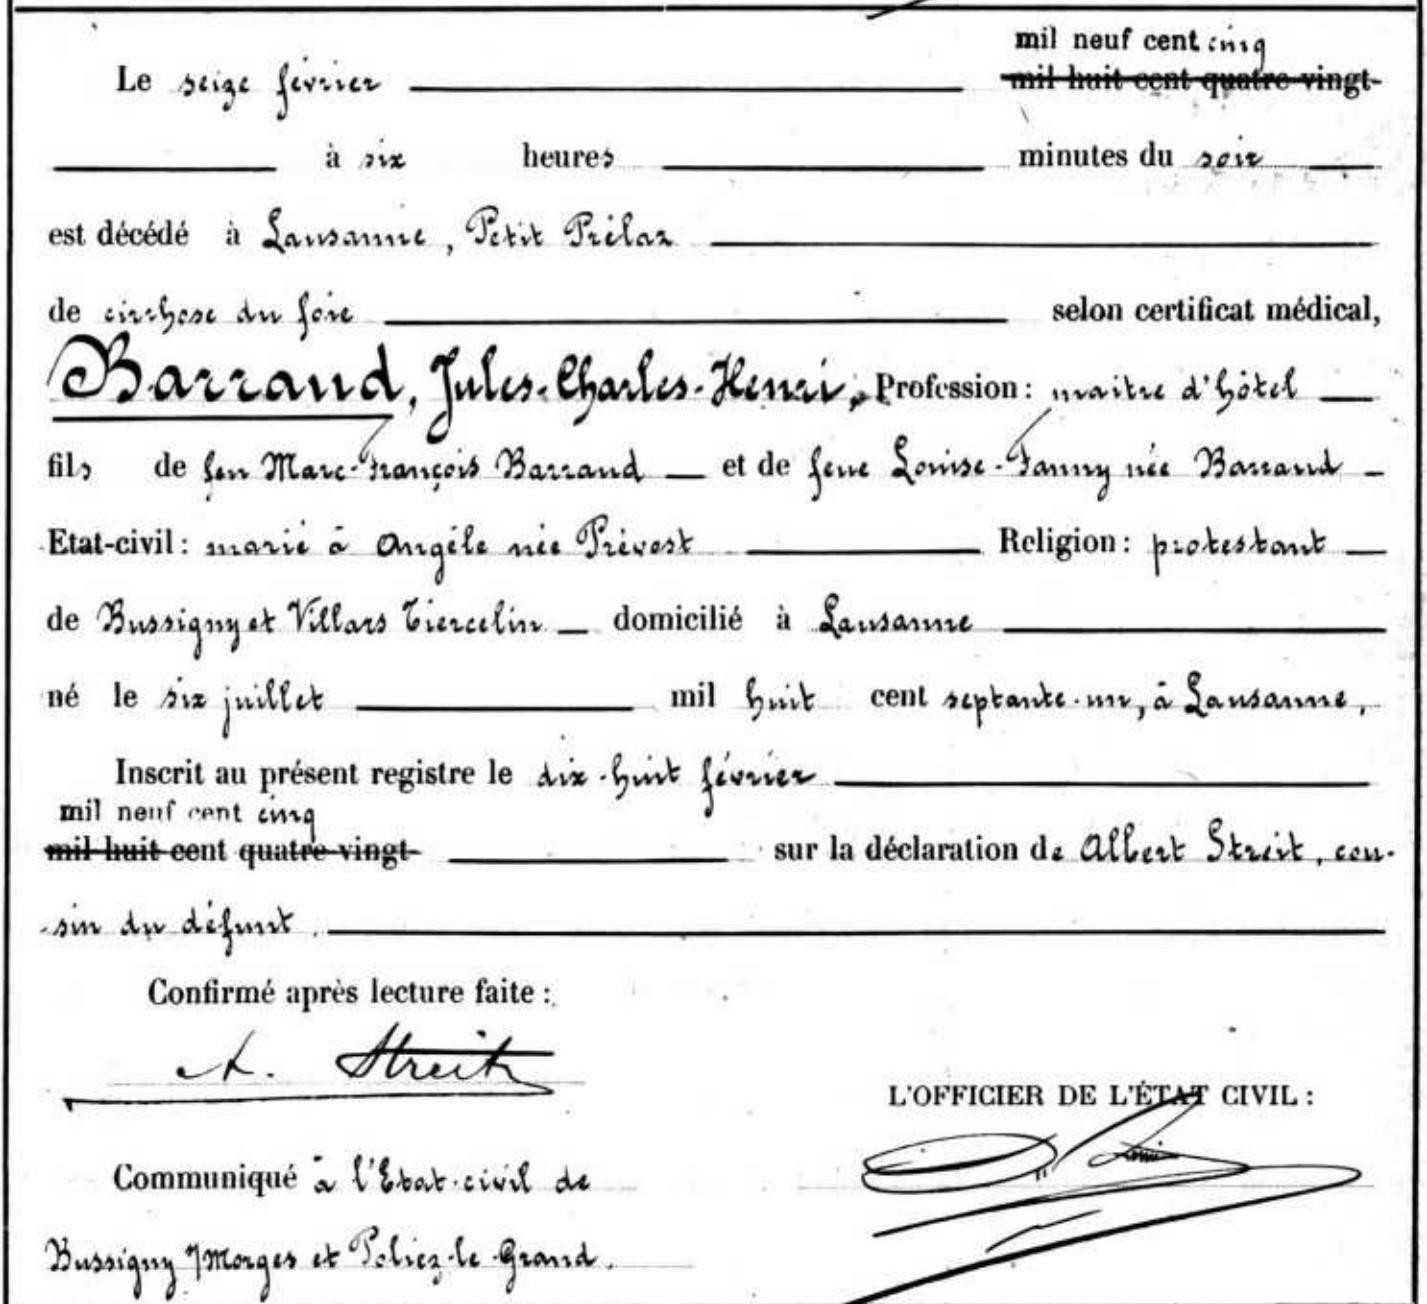 mil neuf cent cinq
Le seize février mil huit cent quatre-vingt-
à six heures minutes du soir
est décédé à Lausanne, Petit Prélaz
de cirrhose du foie selon certificat médical,
Barraud, Jules-Charles-Henri, Profession: maître d'hôtel
fils de feu Marc-François Barraud et de feue Louise-Fanny née Barraud
Etat-civil: marié à Angèle née Prévost Religion: protestant
de Bussigny et Villars Tiercelin domicilié à Lausanne
né le six juillet mil huit cent septante-un, à Lausanne,
Inscrit au présent registre le dix-huit février
mil neuf cent cinq
mil huit cent quatre-vingt- sur la déclaration de Albert Streit, cou-
sin du défunt.
Confirmé après lecture faite:
A. Streit
L'OFFICIER DE L'ÉTAT CIVIL:
Communiqué à l'Etat-civil de
Bussigny s/Morges et Poliez-le-Grand.